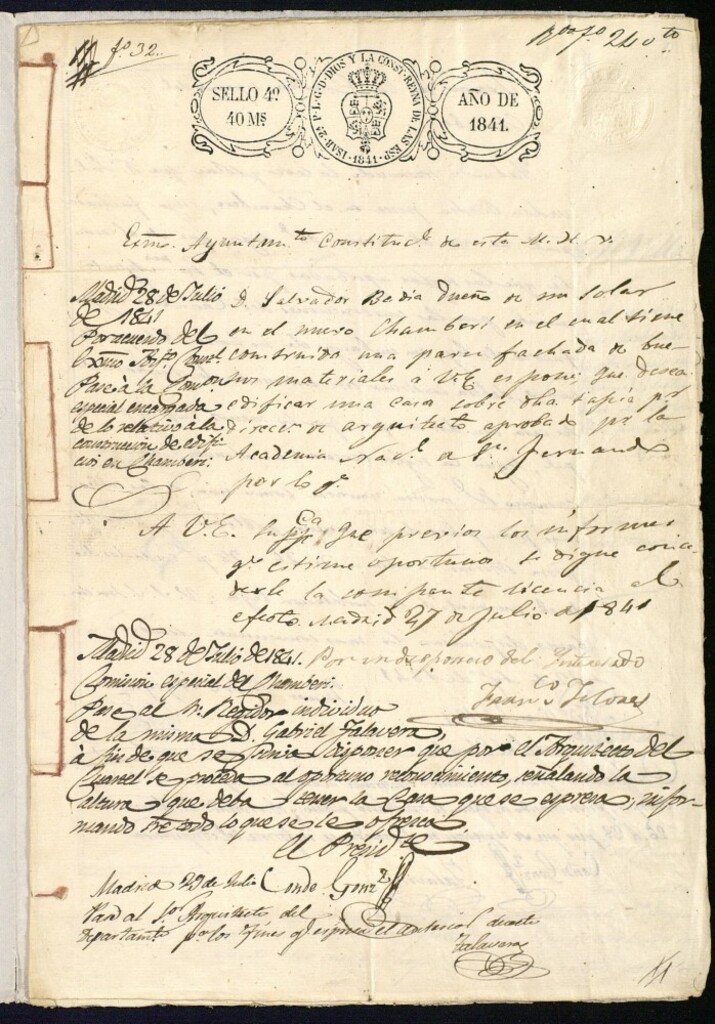 fº 32.
240
SELLO 4º
40 Ms
ISAB. 2ª P. L. G. D. DIOS Y LA CONST. REYNA DE LAS ESP.
1841
AÑO DE
1841.
Exmo. Ayuntam.to Constituc.l de esta M. H. V.
Madrid 28 de Julio
de 1841
Por acuerdo del
Exmo Ayt.o Const.
Pase á la Comon
especial encargada
de lo relativo á la
construccion de edifi-
cios en Chamberi.
D. Salvador Bedia dueño de un solar
en el nuevo Chamberi en el cual tiene
construido una pared fachada de bue-
nos materiales á V.E. espone; que desea
edificar una casa sobre dha tapia pr
direcc.n de arquitecto aprobado pr la
Academia Nac.l de Sn Fernando
por lo q.e
A V.E. Suppca que previos los informes
q.e estime oportunos se digne conce-
derle la competente licencia al
efecto. Madrid 27 de Julio de 1841
Por indisposicion del Interesado
Franco
Madrid 28 de Julio de 1841.
Comision especial de Chamberi.
Pase al Sr. Regidor individuo
de la misma D. Gabriel Talavera,
á fin de que se sirva disponer que por el Arquitecto del
Cuartel se proceda al oportuno reconocimiento, señalando la
altura que deba tener la Casa que se espresa; infor-
mando sre todo lo que se le ofrezca
El Presid.te
Conde Gonz
Madrid 29 de Julio
Pase al Sor Arquitecto del
Departamto pa los fines q espresa el anterior decreto
Talavera